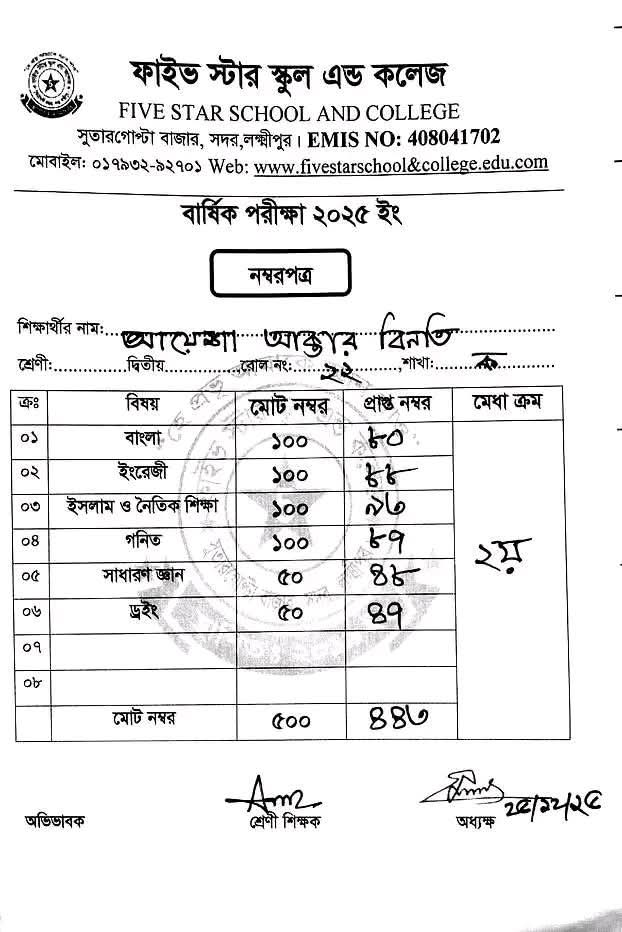 ফাইভ স্টার স্কুল এন্ড কলেজ
FIVE STAR SCHOOL AND COLLEGE
সুতারগোপ্টা বাজার, সদর,লক্ষ্মীপুর। EMIS NO: 408041702
মোবাইল: ০১৭৯৩২-৯২৭০১ Web: www.fivestarschool&college.edu.com
বার্ষিক পরীক্ষা ২০২৫ ইং
নম্বরপত্র
শিক্ষার্থীর নাম: আয়েশা আক্তার বিনতি
শ্রেণী: দ্বিতীয় ,রোল নং: ২২ ,শাখা: ক
ক্রঃ বিষয় মোট নম্বর প্রাপ্ত নম্বর মেধা ক্রম
০১ বাংলা ১০০ ৮০
০২ ইংরেজী ১০০ ৮৮
০৩ ইসলাম ও নৈতিক শিক্ষা ১০০ ৯৬
০৪ গনিত ১০০ ৮৭
০৫ সাধারণ জ্ঞান ৫০ ৪৮
২য়
০৬ ড্রইং ৫০ ৪৭
০৭
০৮
মোট নম্বর ৫০০ ৪৪৬
২৫/১২/২৫
অভিভাবক শ্রেণী শিক্ষক অধ্যক্ষ